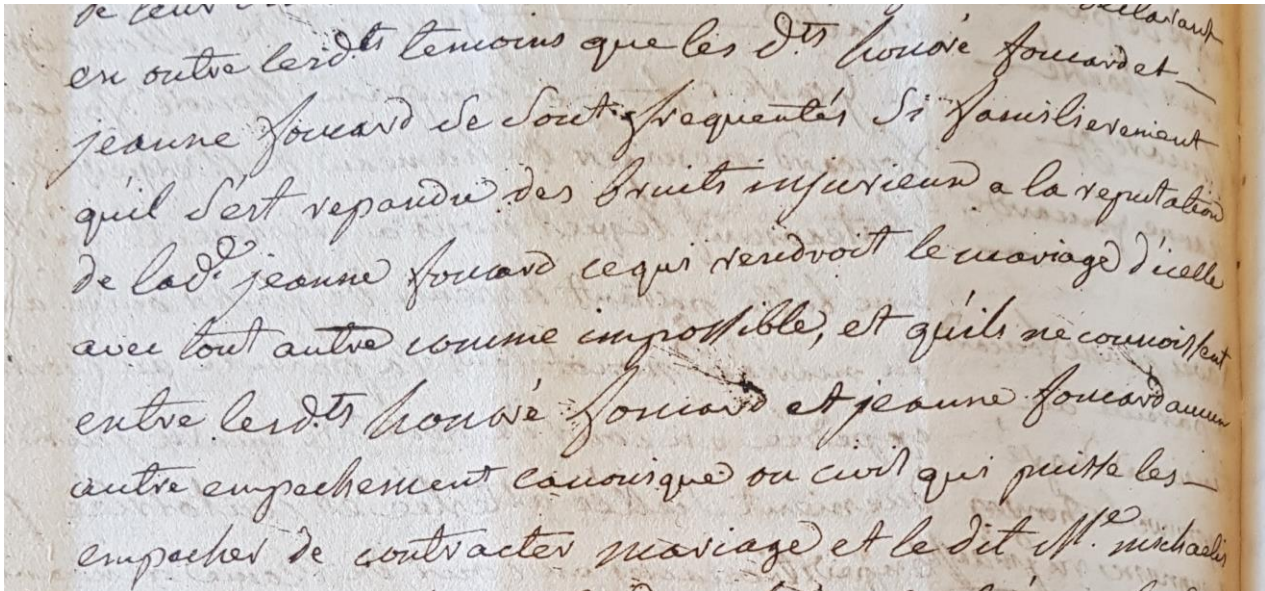 de leur declarant
en outre lesd.ts temoins que les d.ts honoré foucard et
jeanne foucard se sont frequentés si familierement
qu'il s'est repandu des bruits injurieux a la reputation
de lad.e jeanne foucard ce qui rendroit le mariage d'icelle
avec tout autre comme impossible, et qu'ils ne connoissent
entre lesd.ts honoré foucard et jeanne foucard aucun
autre empechement canonique ou civil qui puisse les
empecher de contracter mariage et le dit M.e michaelis